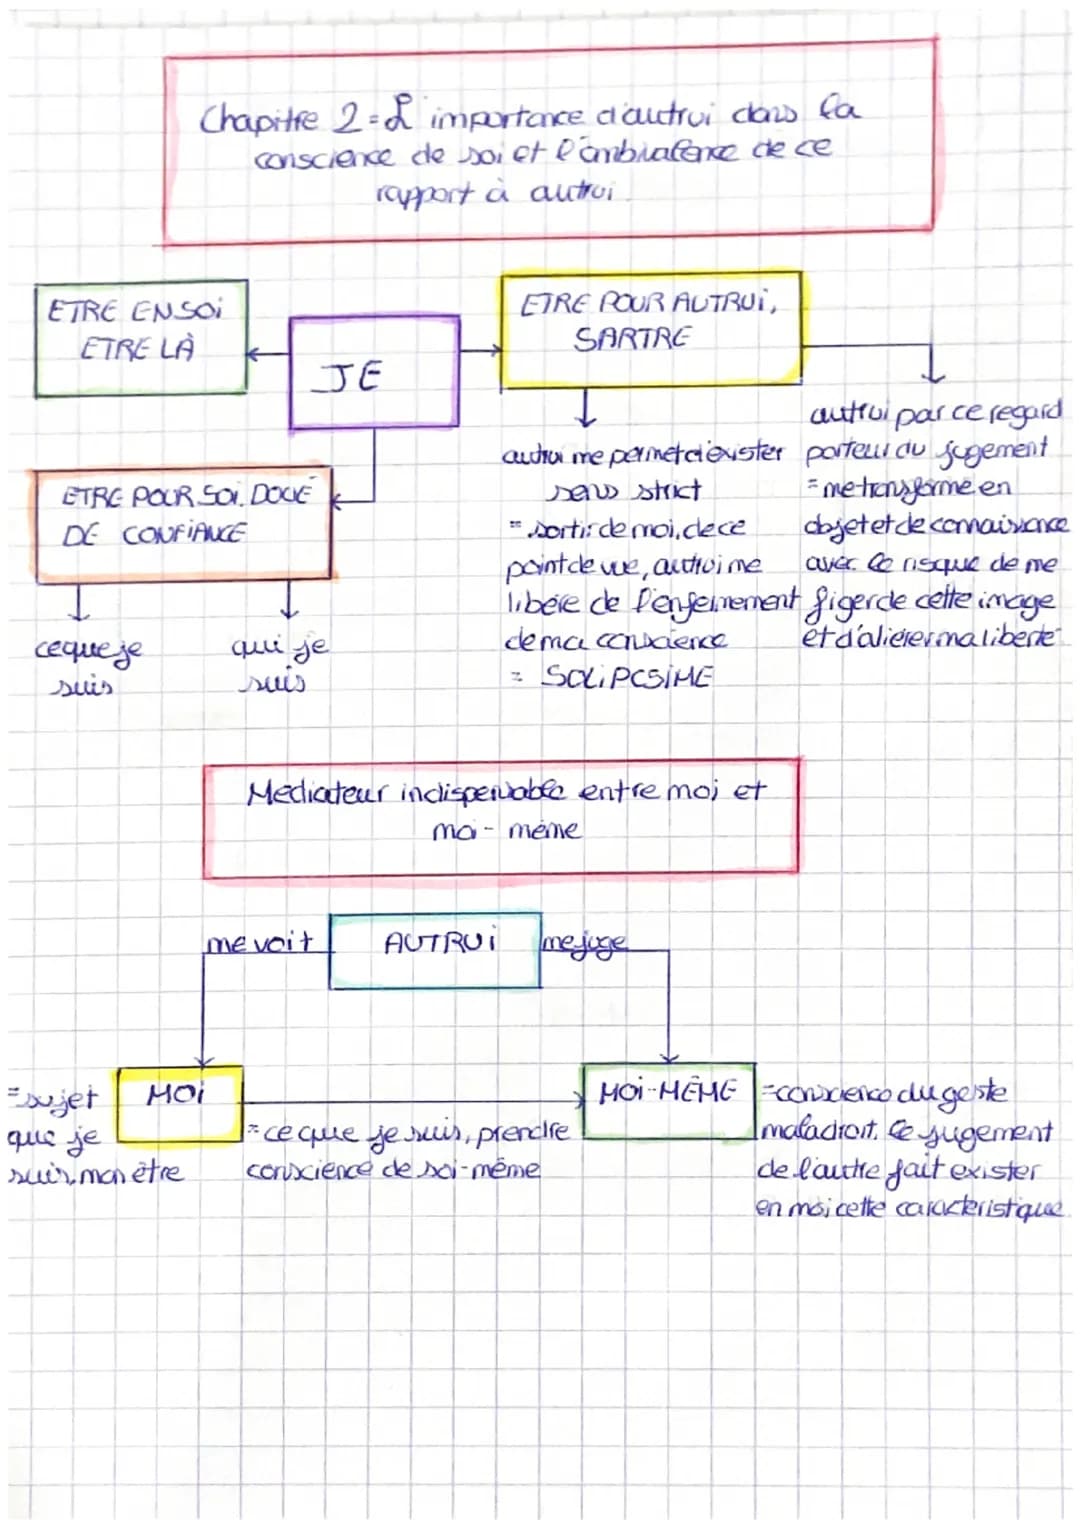 Chapitre 2 = L'importance d'autrui dans la
conscience de soi et l'ambivalence de ce
rapport à autrui.
ETRE EN SOI
ETRE LÀ
JE
ETRE POUR AUTRUI,
SARTRE
ETRE POUR SOI. DOUÉ
DE CONFIANCE
ce que je
suis
qui je
suis
autrui me permet d'exister
sens strict
= sortir de moi, de ce
point de vue, autrui me
libère de l'enfermement
de ma conscience
= SOLIPCSIME
autrui par ce regard
porteur du jugement
= me transforme en
objet et de connaissance
avec le risque de me
figer de cette image
et d'aliérer ma liberté
Mediateur indispensable entre moi et
moi-même
me voit
AUTRUI
me juge
= sujet
que je
suis, mon être
MOI
= ce que je suis, prendre
conscience de soi-même
MOI-MÊME
= conscience du geste
maladroit. Le jugement
de l'autre fait exister
en moi cette caractéristique.